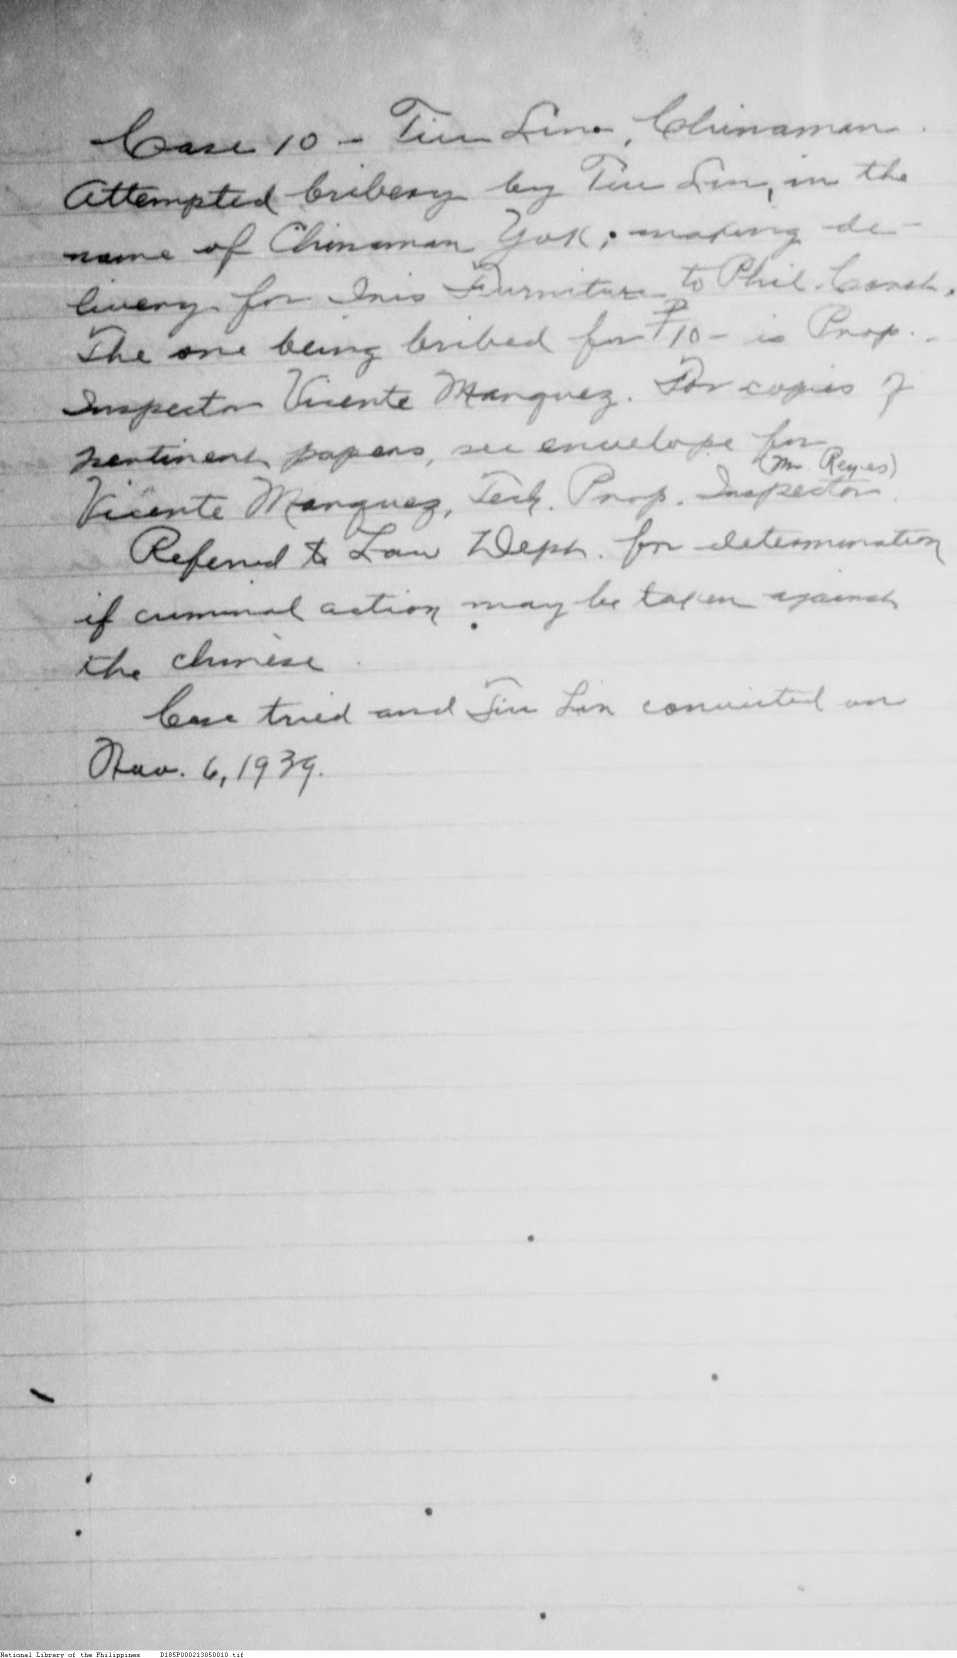 Case 10 - Tiu Lin, Chinaman.
Attempted bribery by Tiu Lin, in the
name of Chinaman Yak, making de-
livery for Iris Furniture to Phil. Const.
The one being bribed for ₱10 - is Prop.
Inspector Vicente Marquez. For copies of
pertinent papers, see envelope for
(Mr. Reyes)
Vicente Marquez, Tech. Prop. Inspector.
Referred to Law Dept. for determination
if criminal action may be taken against
the chinese.
Case tried and Tiu Lin convicted on
Nov. 6, 1939.
National Library of the Philippines D185P000213050010.tif